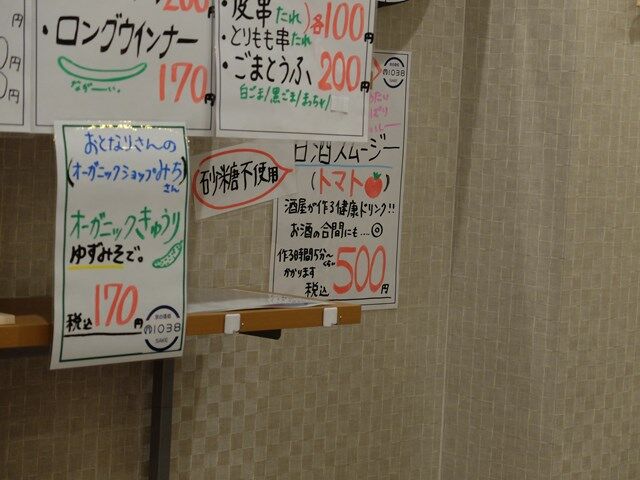 200
円
・ロングウインナー
ながーい。
170円
・皮串たれ
・とりもも串たれ
各100円
・ごまとうふ
200円
白ごま/黒ごま/まっちゃ/
おとなりさんの
(オーガニックショップみち
さん)
オーガニックきゅうり
ゆずみそで。
税込170円
1038
SAKE
砂糖不使用
1038
SAKE
甘酒スムージー
(トマト)
酒屋が作る健康ドリンク!!
お酒の合間にも…◎
作る時間5分〜
くらい
かかります
税込500円